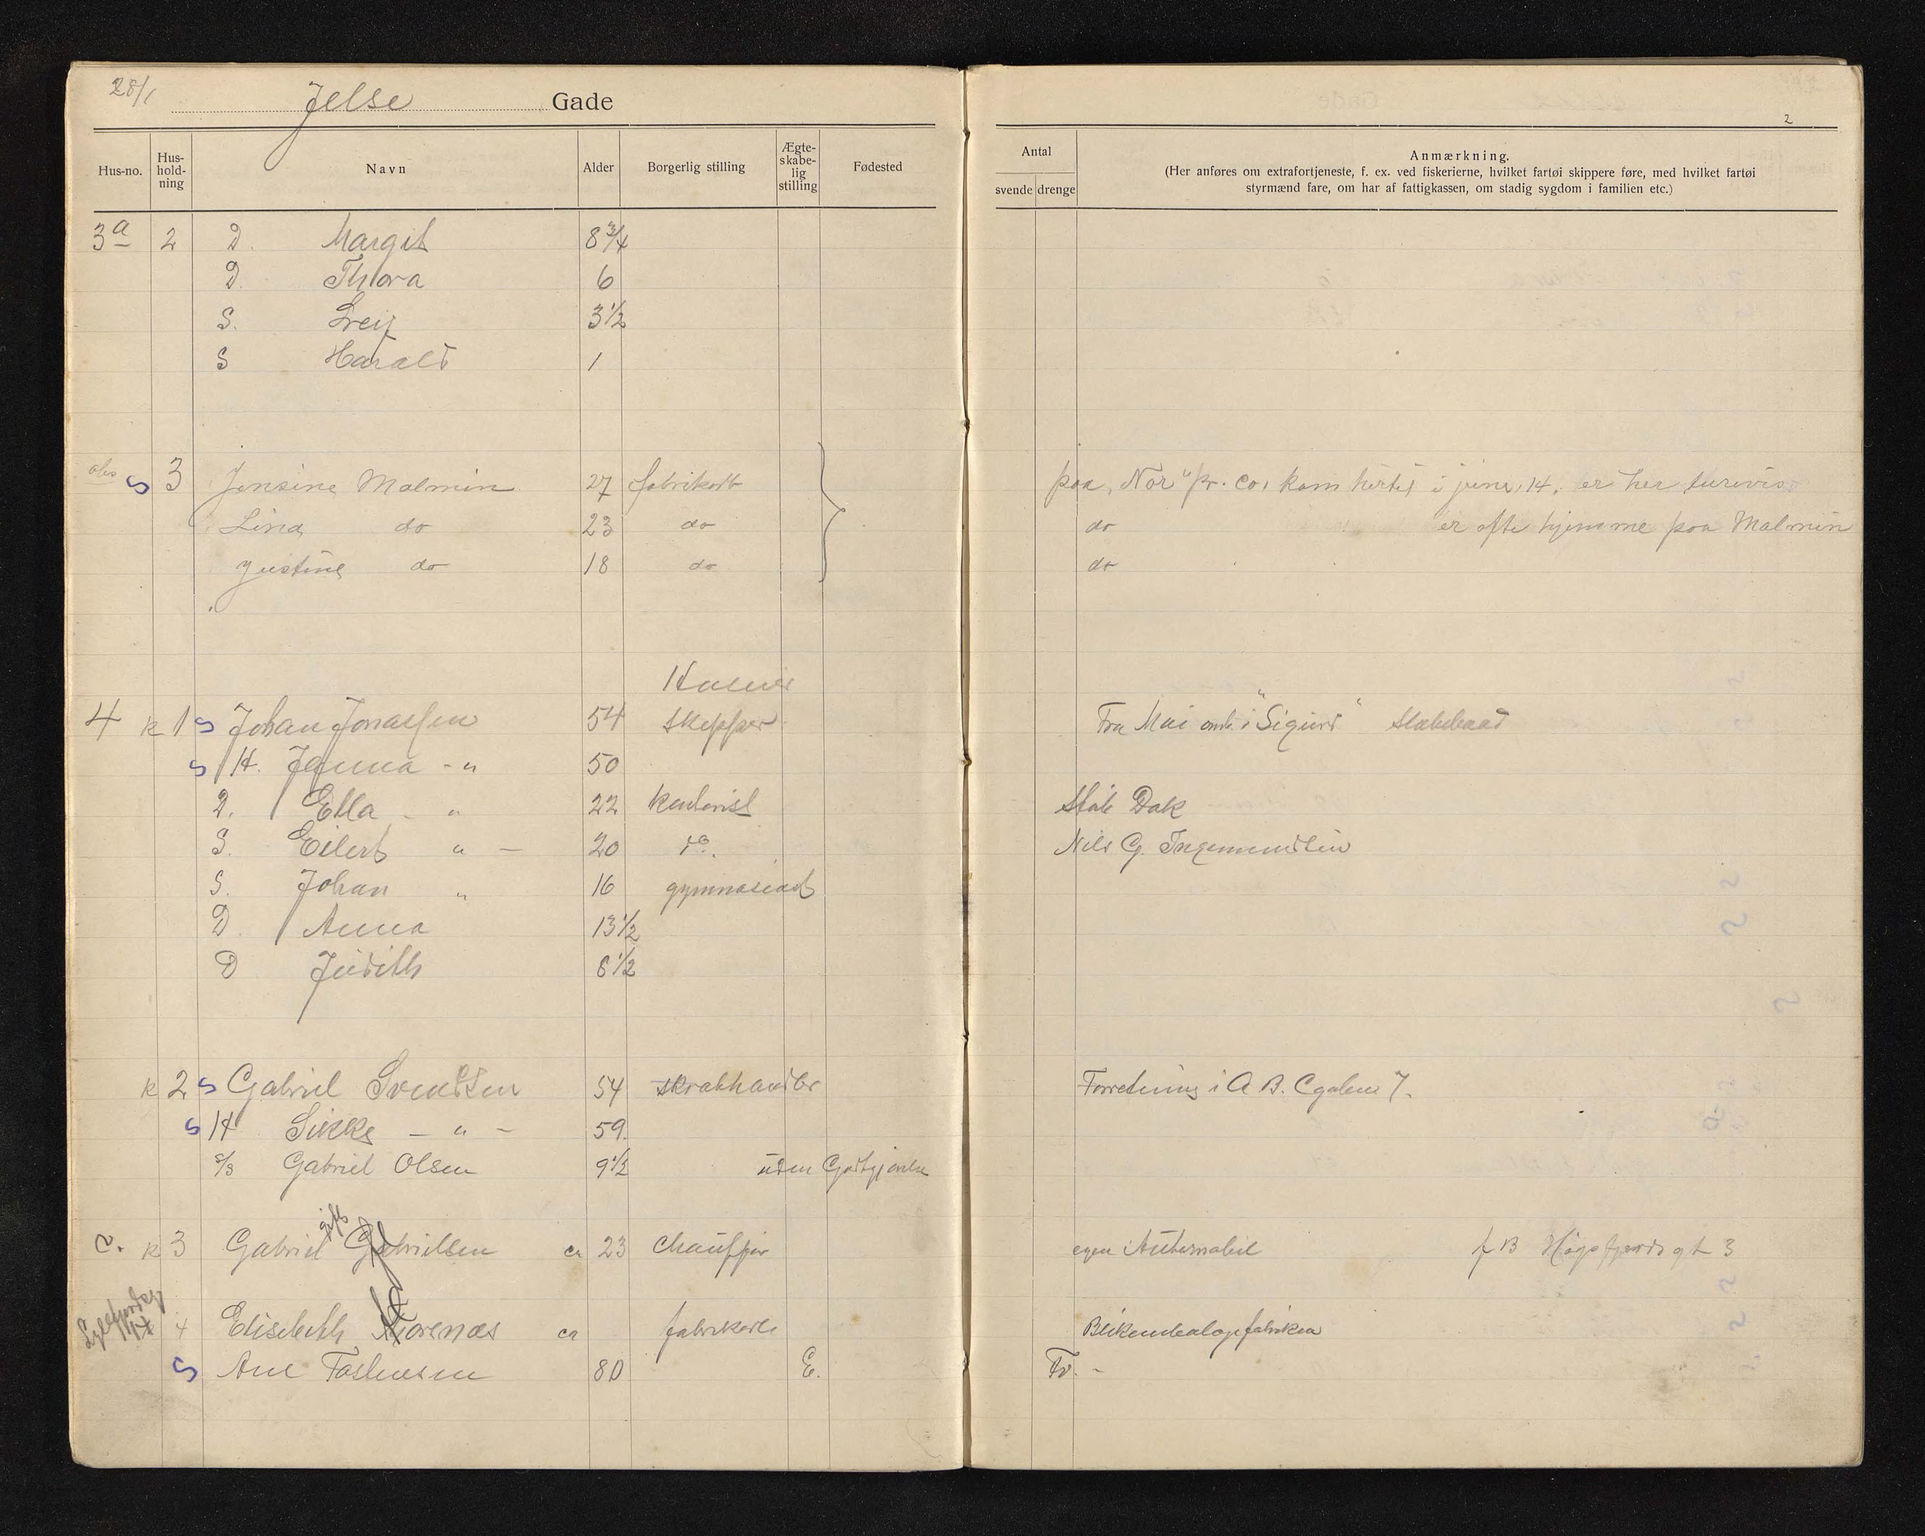 28/1 Jelse Gade
2
Hus-no. Hus-hold-ning Navn Alder Borgerlig stilling Ægte-skabe-lig stilling Fødested
Antal svende drenge
Anmærkning.
(Her anføres om extrafortjeneste, f. ex. ved fiskerierne, hvilket fartøi skippere føre, med hvilket fartøi
styrmænd fare, om har af fattigkassen, om stadig sygdom i familien etc.)
3a 2 D. Margit 8 3/4
D. Thora 6
S. Leif 3 1/2
S Harald 1
obs S 3 Jensine Malmin 27 fabrikarb paa "Nor" pr. co, kom hertil i juni, 14. er her turevis
Lina do 23 do do er ofte hjemme paa Malmin
Justine do 18 do do
4 k 1 S Johan Jonassen 54 skipper Fra Mai omb. i "Sigurd"
S H. Janna - " 50
D. Ella - " 22 kontorist
S. Eilert " - 20 do. Nils G. Ingemundsen
S. Johan " 16 gymnasiast
D. Anna 13 1/2
D Judith 6 1/2
k 2 S Gabriel Svendsen 54 skrabhandler Forretning i A B. C gaten 7.
S H Sikke - " - 59.
P/S Gabriel Olsen 9 1/2 uden Godtgjørelse
c. k 3 Gabriel gift Gabrielsen ca 23 chauffør egen Automobil f B Høgsfjords gt 3
4 Elisebeth ca fabrikarb
S Ane 80 E. Fv. -